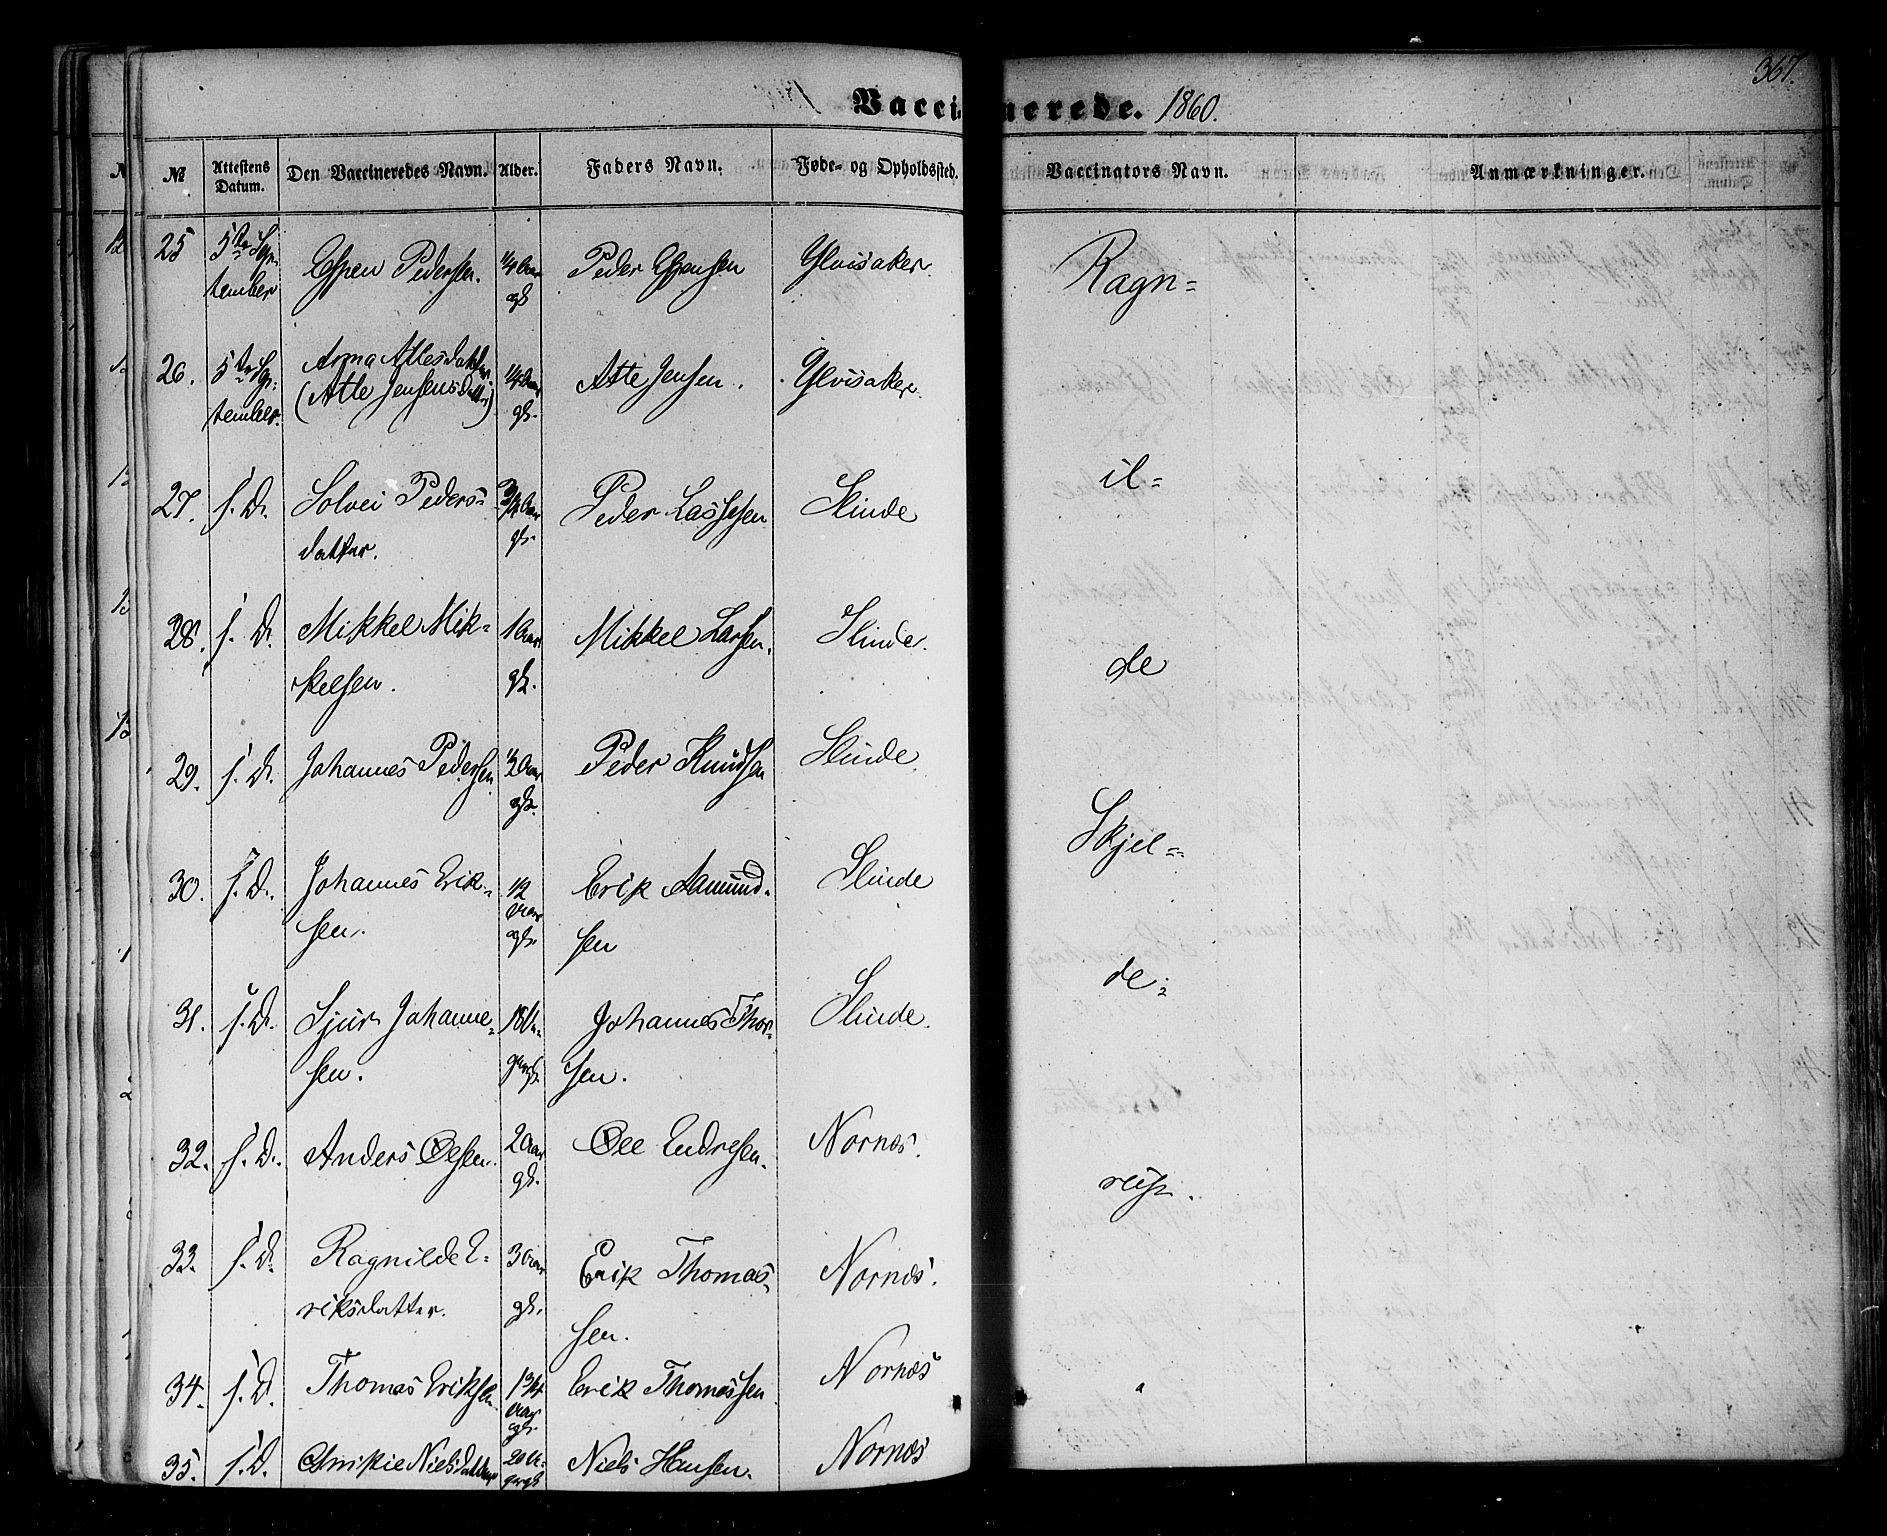 367.
Vaccinerede. 1860.
№ Attestens Datum. Den Vaccineredes Navn. Alder. Faders Navn. Føde- og Opholdssted. Vaccinators Navn. Anmærkninger.
25 5te Sep- Espen Pedersen. 1/4 Aar Peder Espensen Ylvisaker Ragn=
tember gl.
26. 5te Sep: Anna Attesdatter 1/4 Aar Atte Jensen. Ylvisaker
tember. (Atle Jensens Datter) gl.
27. s. D. Solvei Peders- 3/4 Aar Peder Lassesen Slinde il=
datter. gl.
28. s. D. Mikkel Mik- 1 Aar Mikkel Larsen. Slinde. de
kelsen. gl.
29. s. D. Johannes Pedersen 1/2 Aar Peder Knudsen Slinde Skjel=
gl.
30. s. D. Johannes Erik- 1/2 Erik Aamund- Slinde
sen. Aar gl. sen
31. s. D. Sjur Johanne- 18 U- Johannes Thor- Slinde. de=
sen. ger gl. sen.
32. s. D. Anders Olsen. 2 Aar Ole Endresen. Nornæs. rup.
gl.
33. s. D. Ragnilde E- 3 Aar Erik Thomas- Nornæs.
riksdatter. gl. sen.
34. s. D. Thomas Eriksen. 1 3/4 Erik Thomassen Nornæs
Aar gl.
35. s. D. Christie Nielsdatter 20 U- Niels Hansen. Nornæs
ger gl.